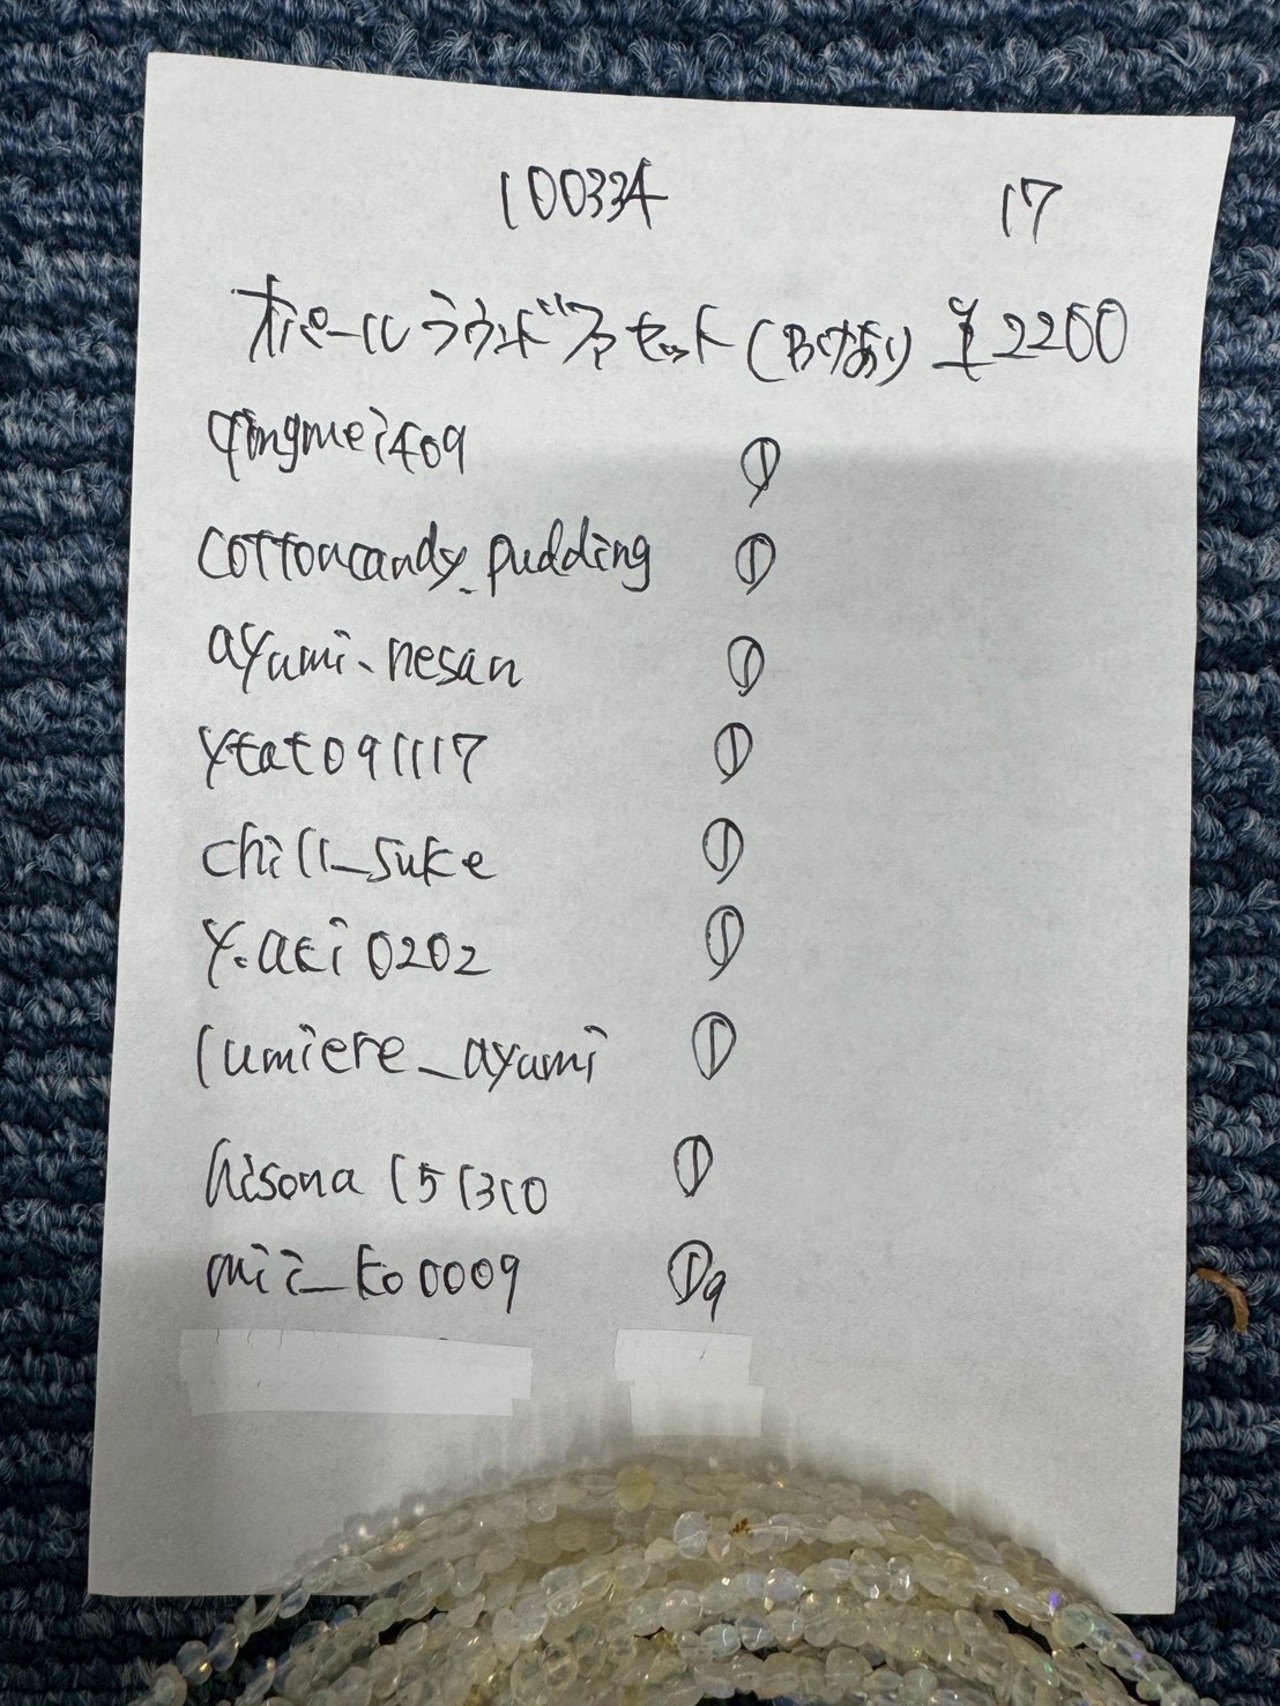 100334 17
オパールラウンドファセット(Bけあり) ¥2200
qingmei409 ①
cottoncandy_pudding ①
ayumi.nesan ①
ytat091117 ①
chill_suke ①
y.aki0202 ①
lumiere_ayumi ①
hisona151310 ①
mii_ko0009 ①9